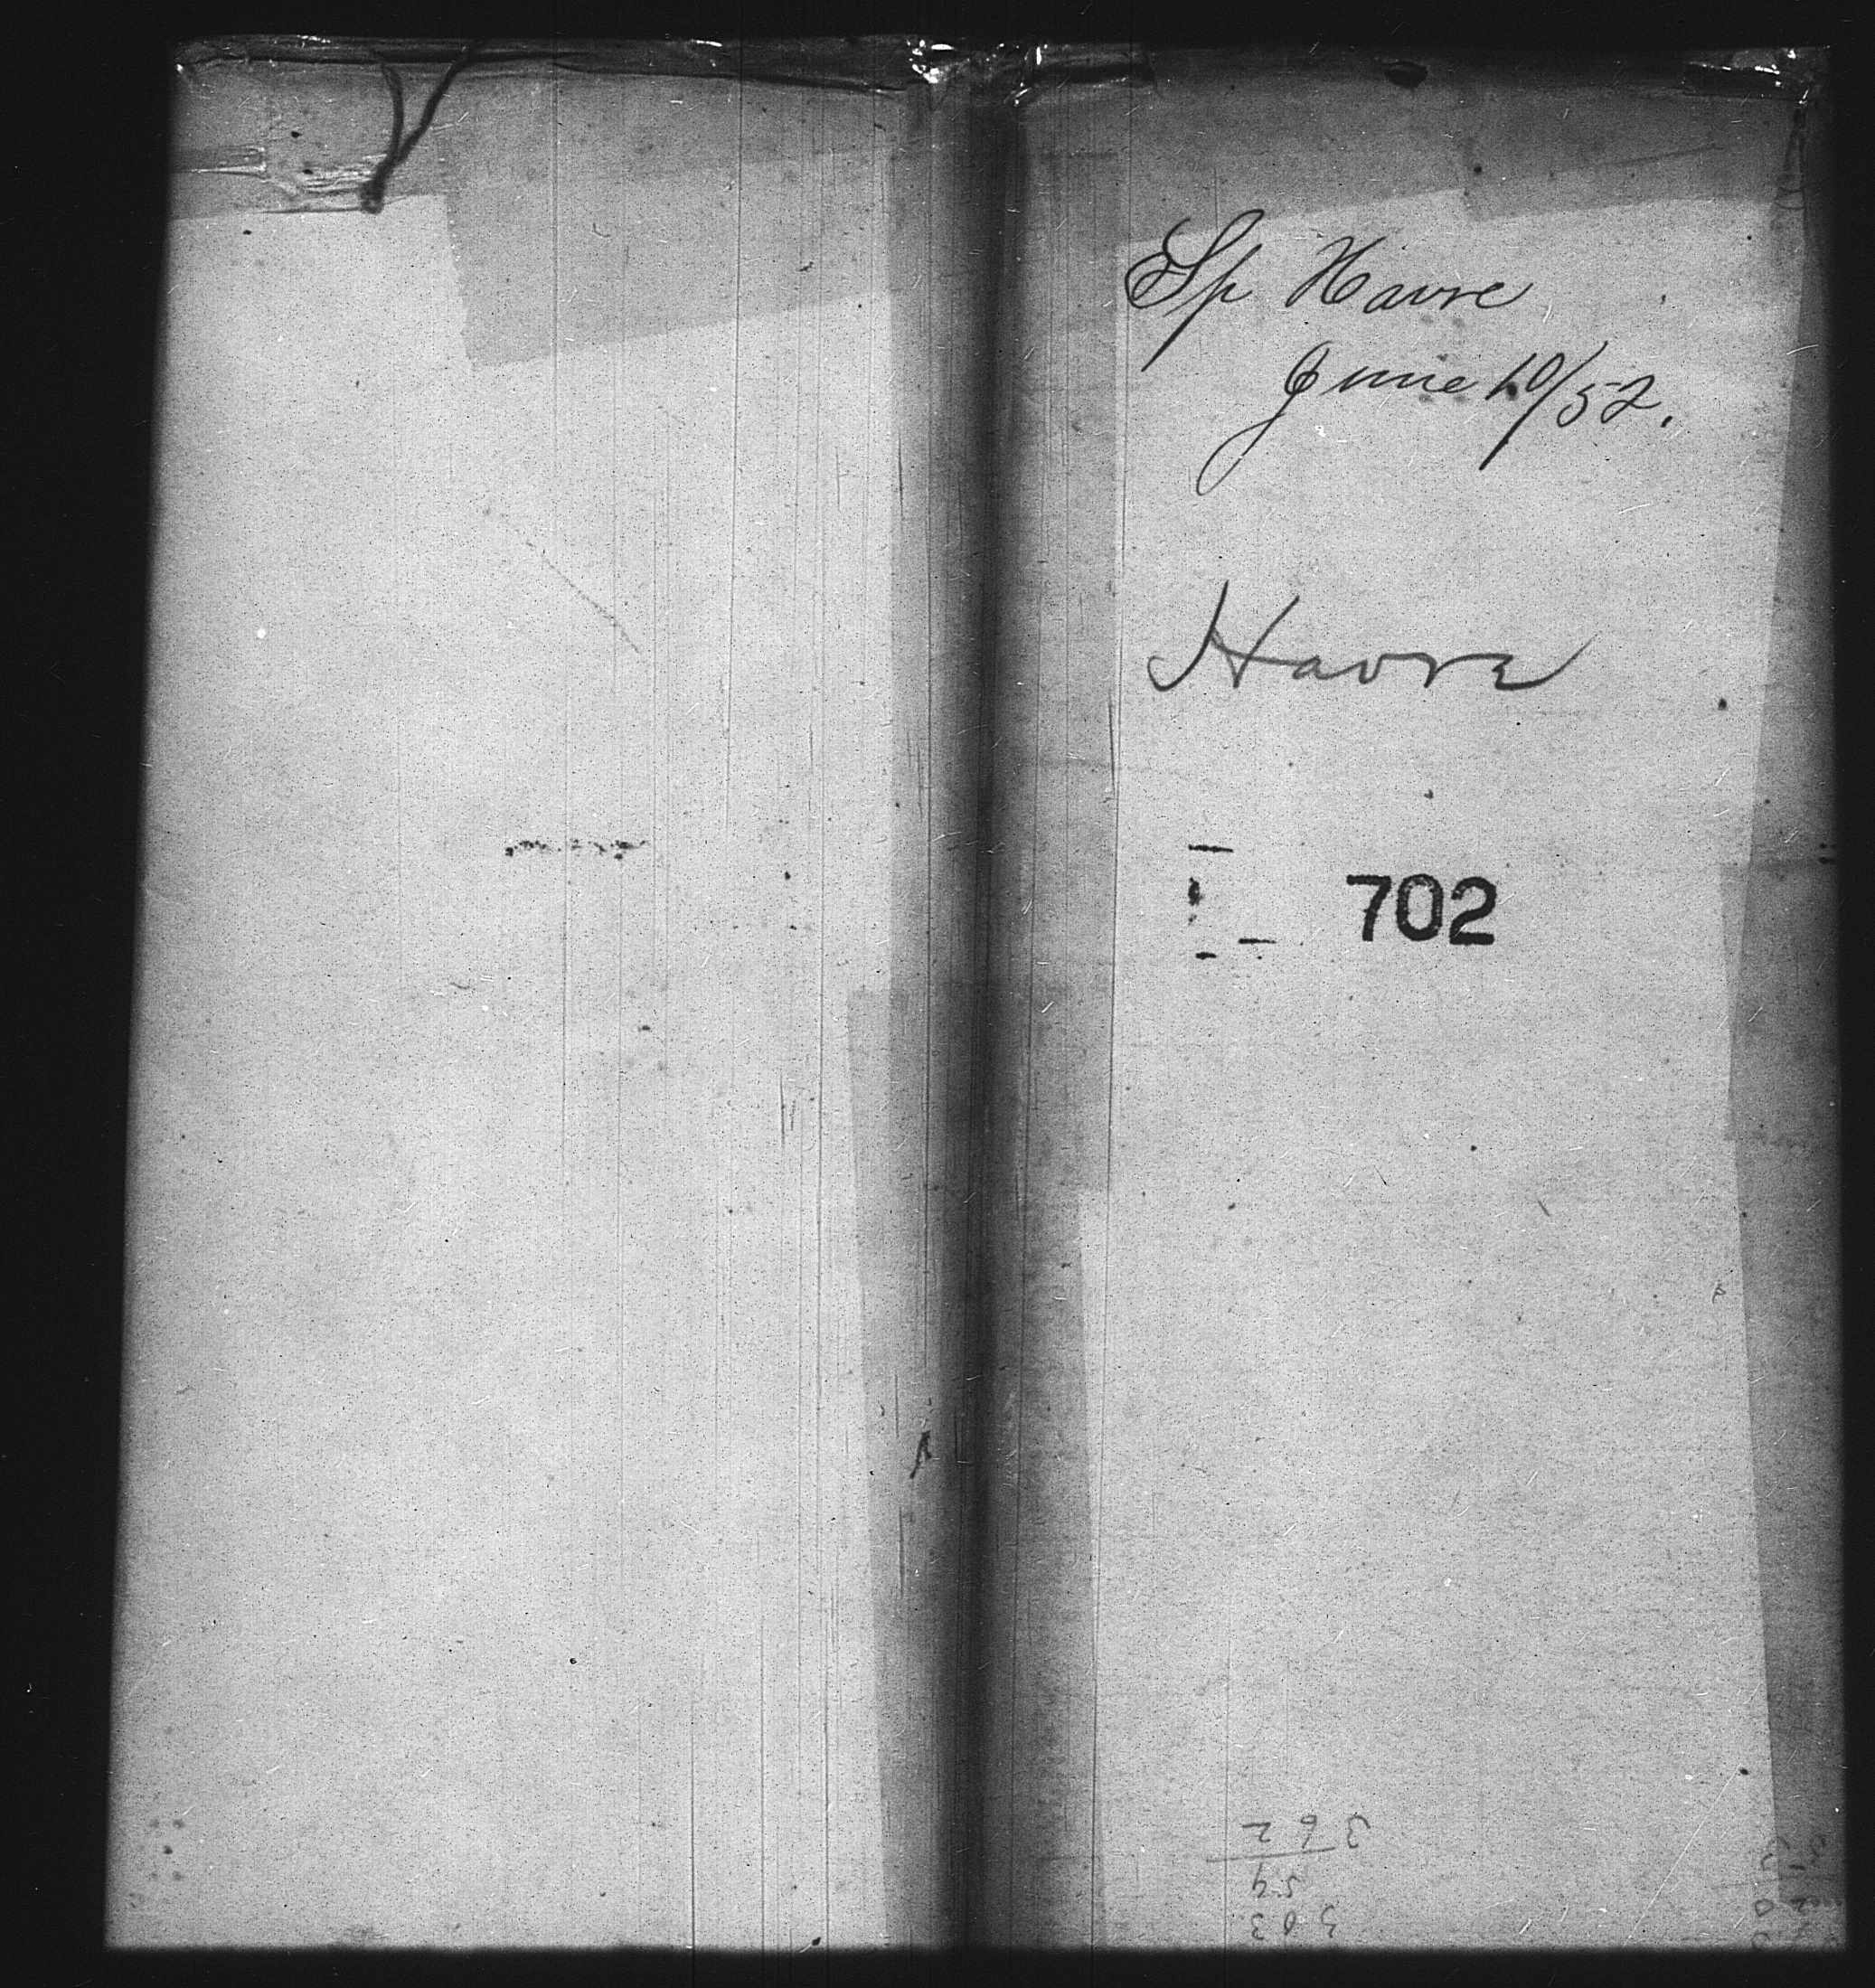 Sp Havre
June 10/52.
Havre
702
362
54
303